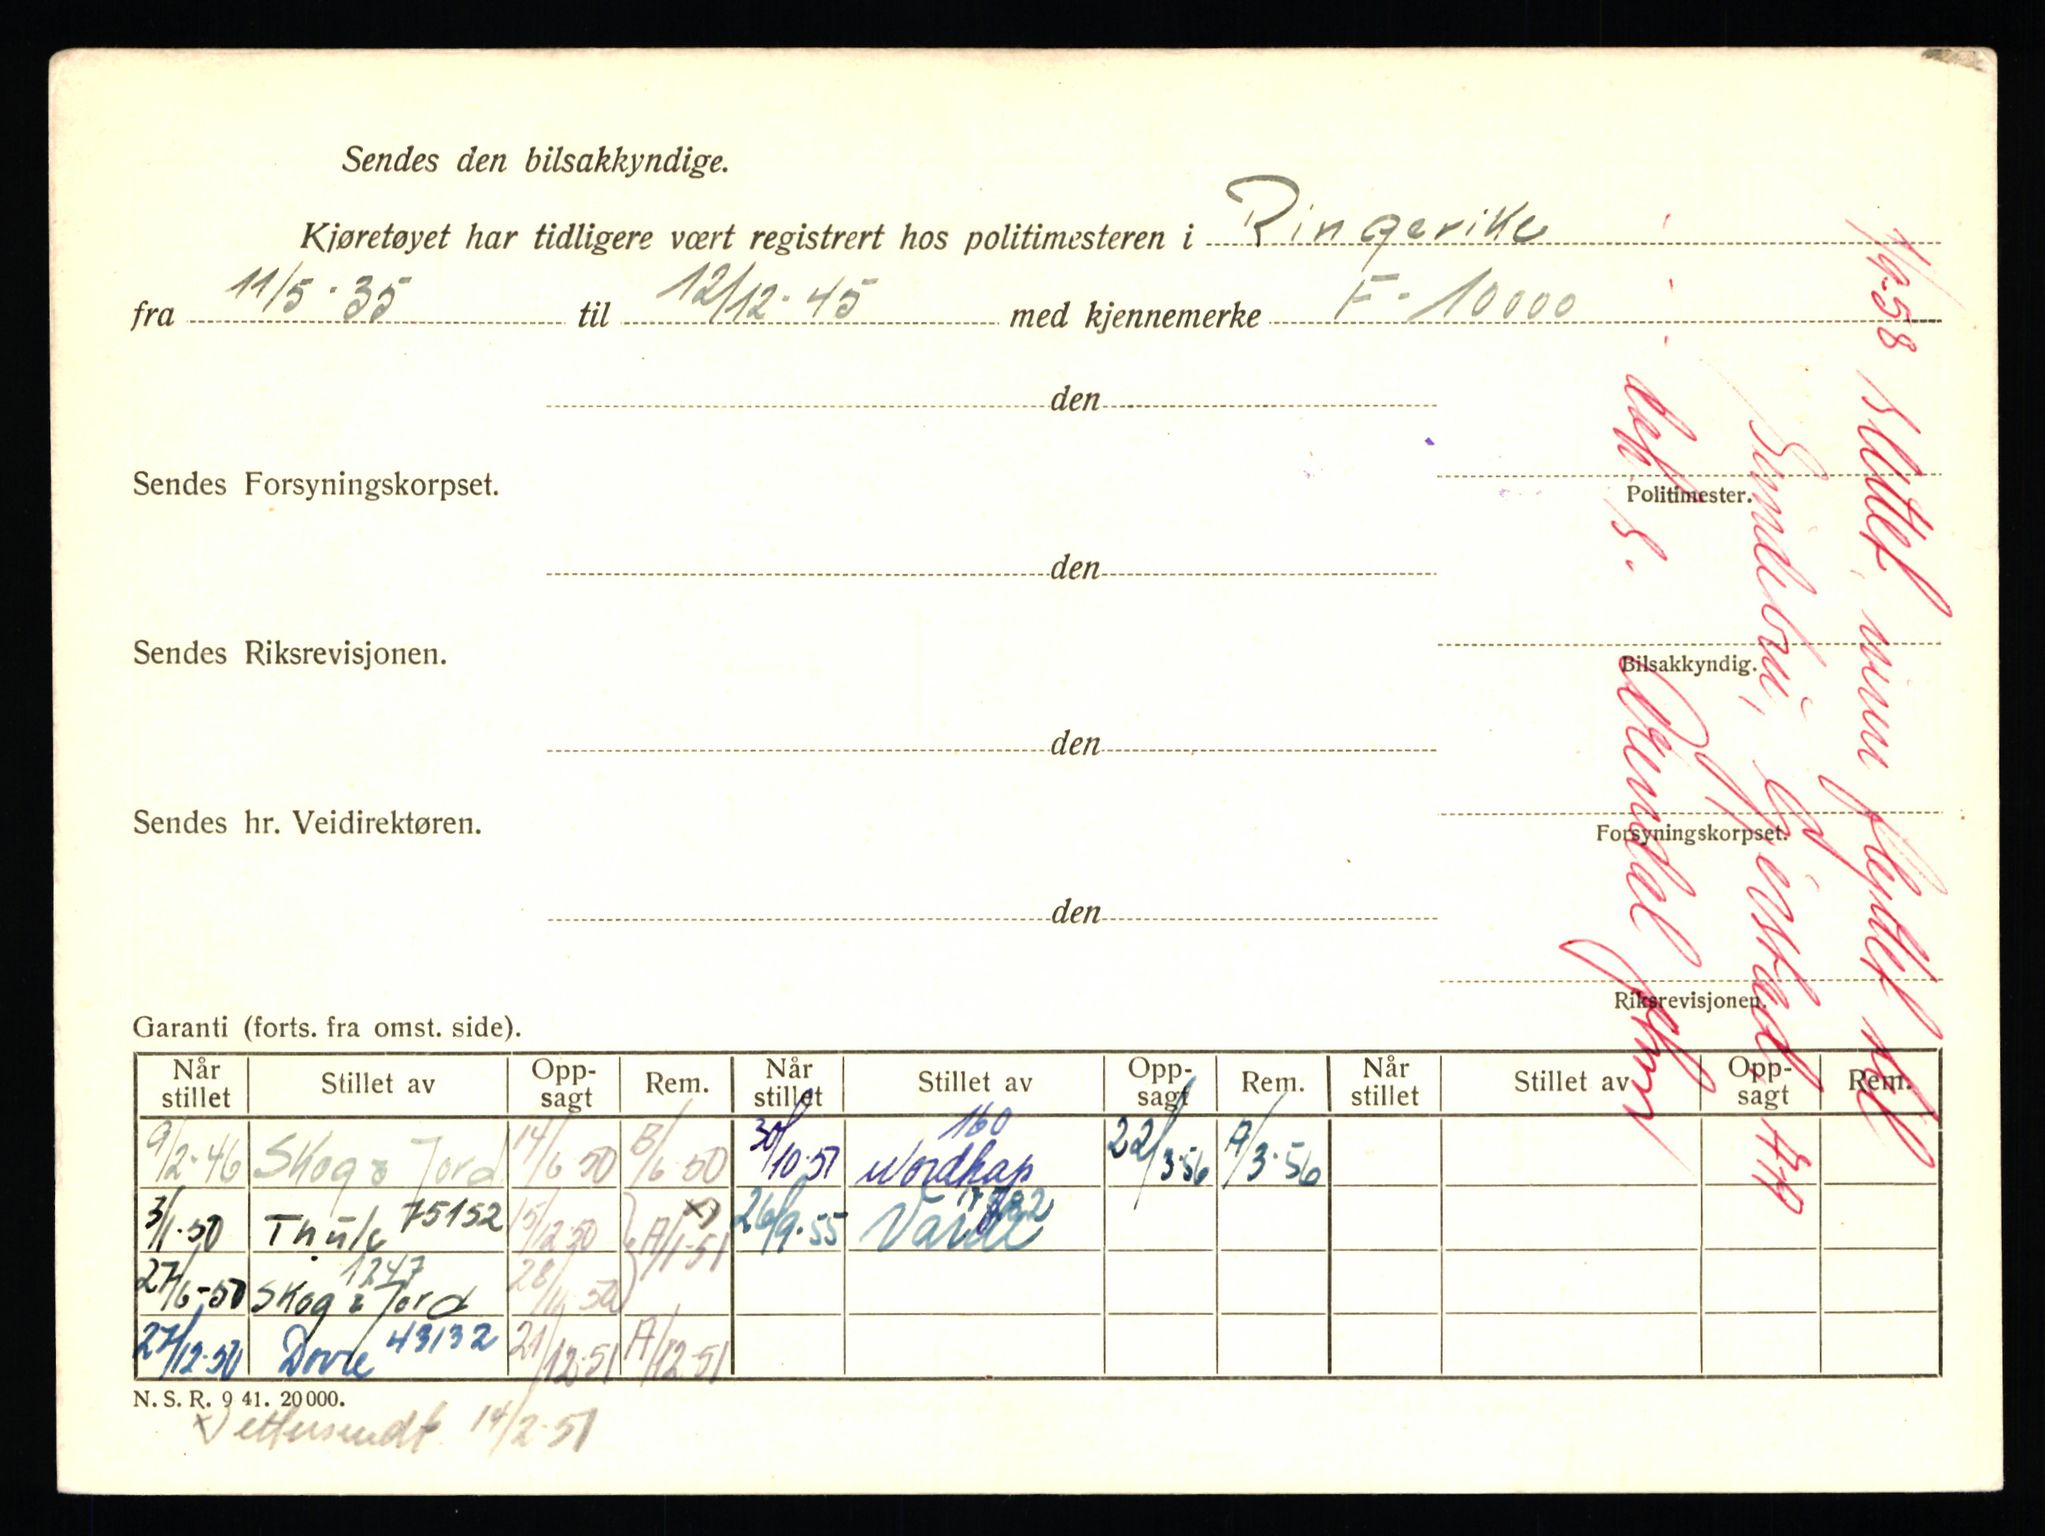 Sendes den bilsakkyndige.
Kjøretøyet har tidligere vært registrert hos politimesteren i Ringerike
fra 11/5-35 til 12/12-45 med kjennemerke F-10000
den
Politimester.
Sendes Forsyningskorpset.
den
Bilsakkyndig.
Sendes Riksrevisjonen.
den
Forsyningskorpset.
Sendes hr. Veidirektøren.
den
Riksrevisjonen.
1/9-58 Slettet, flyttet til
Garanti (forts. fra omst. side).
Når stillet Stillet av Opp-sagt Rem. Når stillet Stillet av Opp-sagt Rem. Når stillet Stillet av Opp-sagt Rem.
9/2-46 Skog & Jord 14/6 50 B/6-50 30/10-51 160 Nordkap 22/3-56 A/3-56
3/1-50 Thule 75152 15/12 50 A/1-51 x) 26/9-55 Varde
27/6-50 1247 Skog & Jord 28/11-50
27/12-50 Dovre 43132 21/12-51 A/12-51
N. S. R. 9 41. 20 000.
x) ettersendt 14/2-51